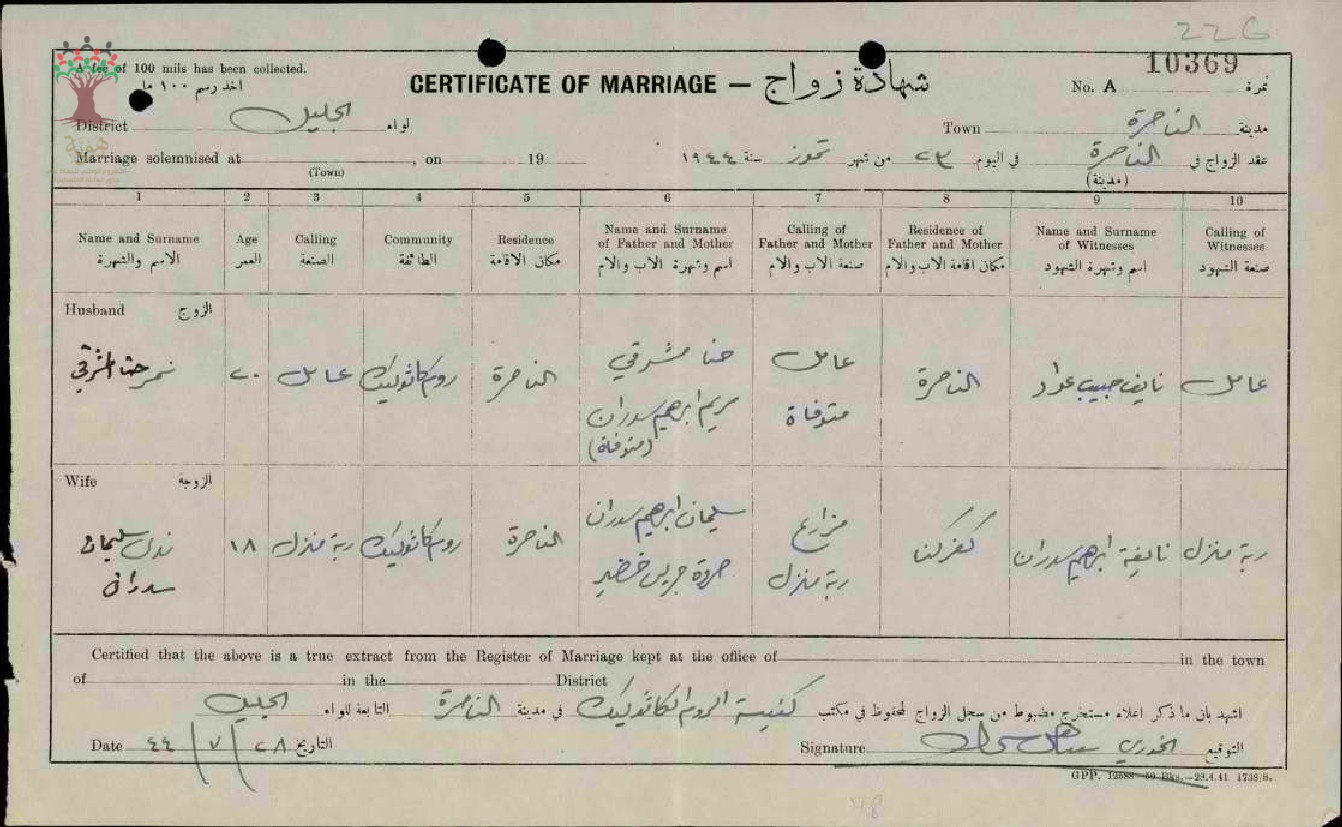 22G
A fee of 100 mils has been collected.
اخذ رسم ١٠٠ مل
CERTIFICATE OF MARRIAGE — شهادة زواج
10369
No. A نمرة
District الجليل لواء
Town الناصرة مدينة
Marriage solemnised at , on 19
(Town)
عقد الزواج في الناصرة في اليوم ٢٣ من شهر تموز سنة ١٩٤٤
(مدينة)
1 2 3 4 5 6 7 8 9 10
Name and Surname
الاسم والشهرة
Age
العمر
Calling
الصنعة
Community
الطائفة
Residence
مكان الاقامة
Name and Surname
of Father and Mother
اسم وشهرة الاب والام
Calling of
Father and Mother
صنعة الاب والام
Residence of
Father and Mother
مكان اقامة الاب والام
Name and Surname
of Witnesses
اسم وشهرة الشهود
Calling of
Witnesses
صنعة الشهود
Husband الزوج
نمر حنا مشرقي
٢٠
عامل
روم كاثوليك
الناصرة
حنا مشرقي
مريم ابرهيم سدران
(متوفاة)
عامل
متوفاة
الناصرة
نايف حبيب عواد
عامل
Wife الزوجة
سليمان
سدران
١٨
ربة منزل
روم كاثوليك
الناصرة
سليمان ابرهيم سدران
جريس خضير
مزارع
ربة منزل
كفركنا
نايفة ابرهيم سدران
ربة منزل
Certified that the above is a true extract from the Register of Marriage kept at the office of in the town
of in the District
اشهد بان ما ذكر اعلاه مستخرج مضبوط من سجل الزواج المحفوظ في مكتب كنيسة الروم الكاثوليك في مدينة الناصرة التابعة للواء الجليل
Date ٢٨/٧/٤٤ التاريخ
Signature الخوري التوقيع
GPP. 12588—50 Bks.—28.4.41. 1736/B.
48